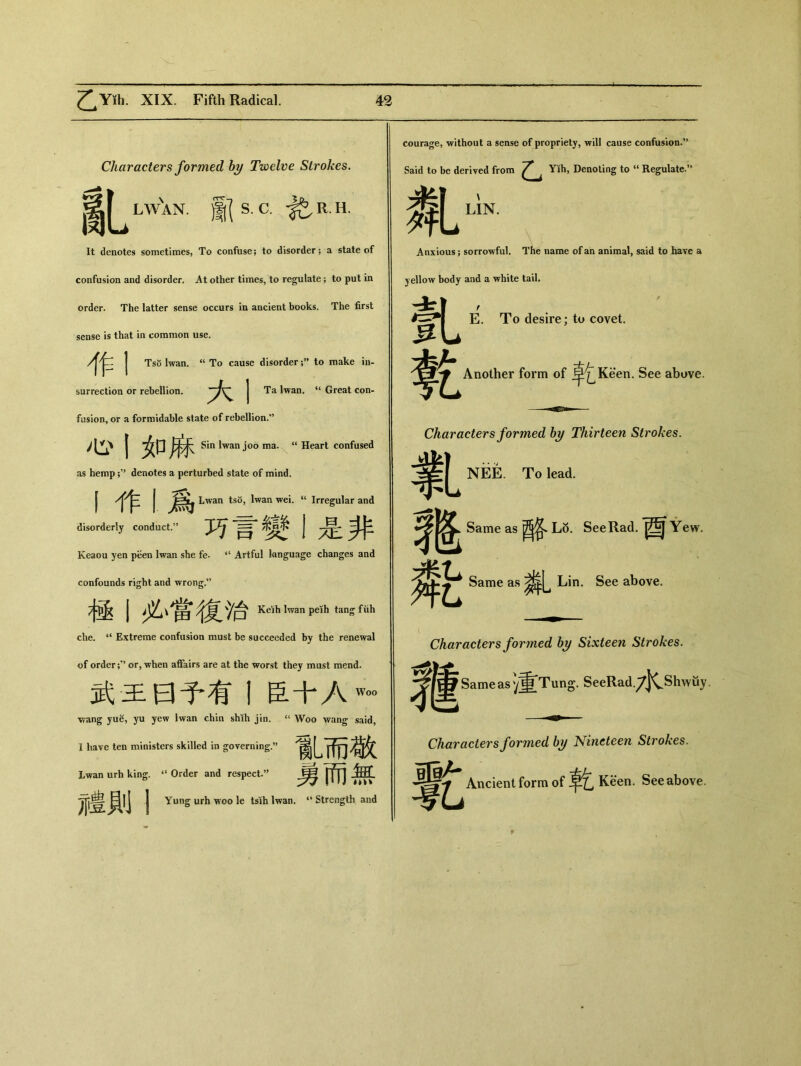 乙 Yĭh. XIX. Fifth Radical. 42
Characters formed by Twelve Strokes.
亂 LWÀN. S. C. R. H.
It denotes sometimes, To confuse; to disorder; a state of
confusion and disorder. At other times, to regulate; to put in
order. The latter sense occurs in ancient books. The first
sense is that in common use.
作 | Tsŏ lwan. “ To cause disorder;” to make in-
surrection or rebellion. 大 | Ta lwan. “ Great con-
fusion, or a formidable state of rebellion.”
心 | 如麻 Sin lwan joo ma. “ Heart confused
as hemp;” denotes a perturbed state of mind.
| 作 | 爲 Lwan tsŏ, lwan wei. “ Irregular and
disorderly conduct.” 巧言變 | 是非
Keaou yen pëen lwan she fe. “ Artful language changes and
confounds right and wrong.”
極 | 必當復治 Keĭh lwan peĭh tang fŭh
che. “ Extreme confusion must be succeeded by the renewal
of order;” or, when affairs are at the worst they must mend.
武王曰予有 | 臣十人 Woo
wang yuĕ, yu yew lwan chin shĭh jin. “ Woo wang said,
I have ten ministers skilled in governing.” 亂而敬
Lwan urh king. “ Order and respect.” 勇而無
禮則 | Yung urh woo le tsĭh lwan. “ Strength and
courage, without a sense of propriety, will cause confusion.”
Said to be derived from 乙 Yĭh, Denoting to “ Regulate.”
LÌN.
Anxious; sorrowful. The name of an animal, said to have a
yellow body and a white tail.
É. To desire; to covet.
Another form of 乾 Këen. See above.
Characters formed by Thirteen Strokes.
NËĔ. To lead.
Same as Lŏ. See Rad. 酉 Yew.
Same as Lin. See above.
Characters formed by Sixteen Strokes.
Same as 湩 Tung. See Rad. 水 Shwŭy.
Characters formed by Nineteen Strokes.
Ancient form of 乾 Këen. See above.